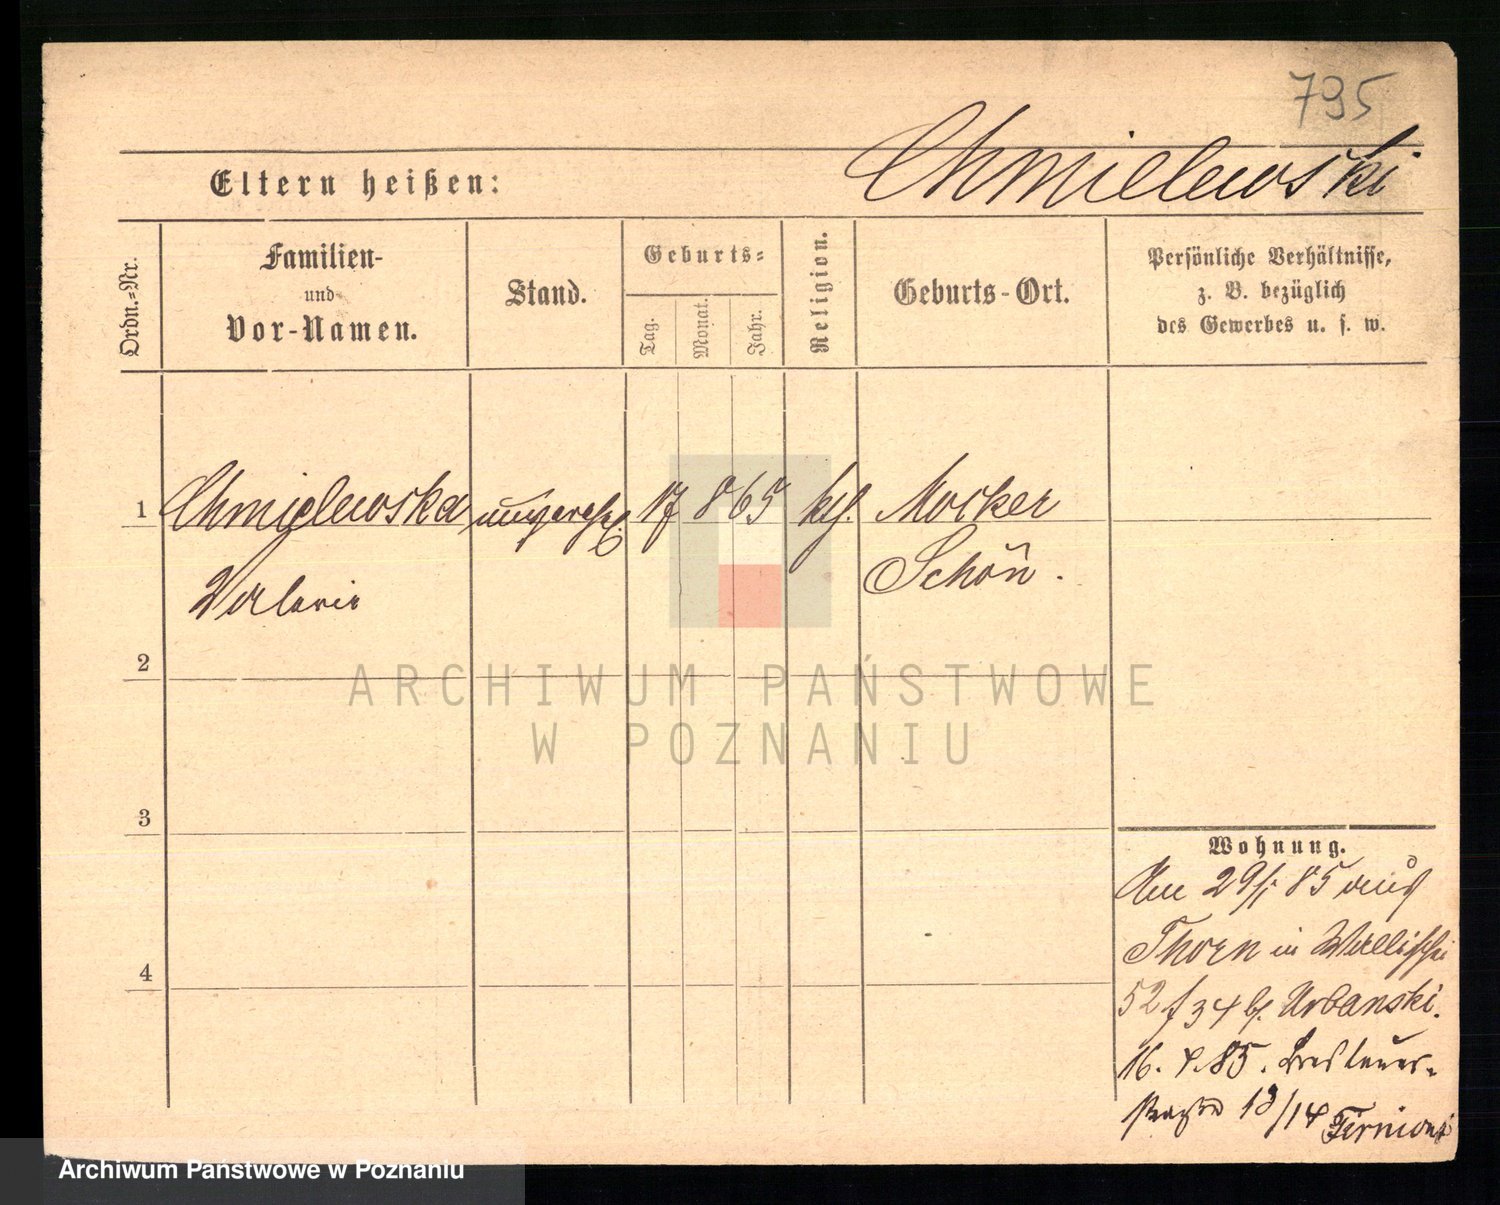 795
Chmielewski
Eltern heißen:
Ordn.=Nr.
Familien-
und
Vor-Namen.
Stand.
Geburts=
Tag.
Monat.
Jahr.
Religion.
Geburts-Ort.
Persönliche Verhältnisse,
z. B. bezüglich
des Gewerbes u. s. w.
1
Chmielewska
17 8 65 kth. Mocker
Schön.
Valerie
2
ARCHIWUM PAŃSTWOWE
W POZNANIU
3
Wohnung.
Am 29/1 85 aus
Thorn in Wallischei
4
52 f 34 b. Urbanski.
16. 4. 85. Breslauer-
straße 13/14
Archiwum Państwowe w Poznaniu